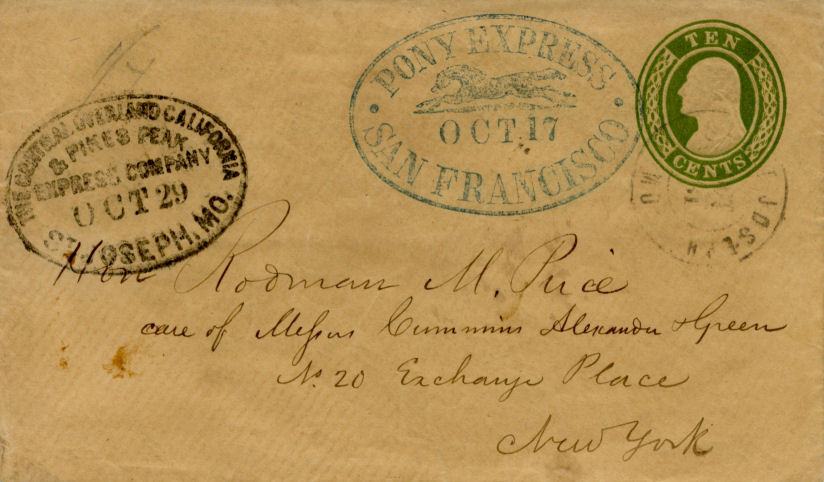 PONY EXPRESS
OCT. 17
SAN FRANCISCO
TEN
CENTS
THE CENTRAL OVERLAND CALIFORNIA
& PIKES PEAK
EXPRESS COMPANY
OCT 29
ST. JOSEPH, MO.
JOSEPH
MO
Hon Rodman M. Price
care of Messrs Cummins Alexander & Green
No. 20 Exchange Place
New York